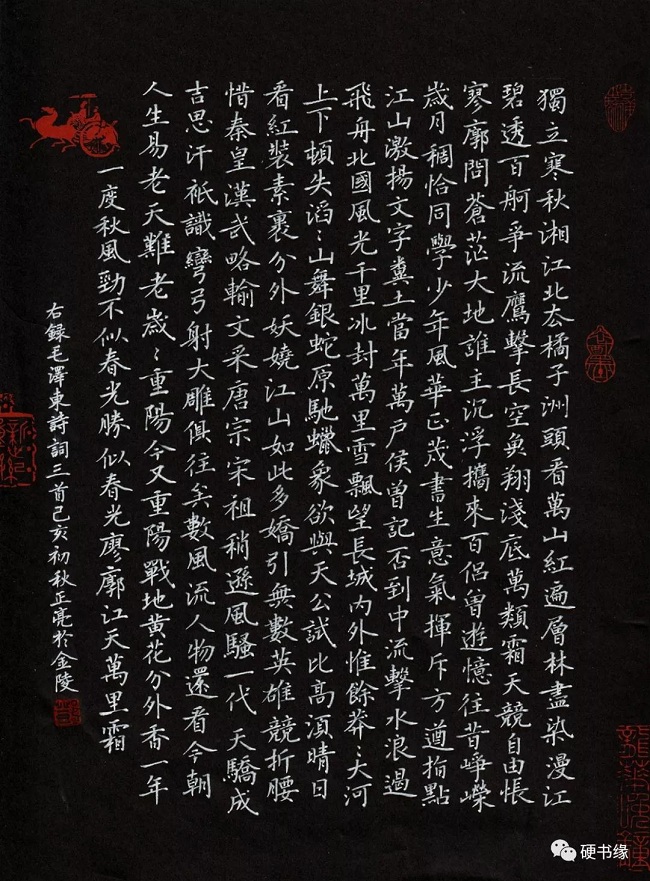 獨立寒秋湘江北去橘子洲頭看萬山紅遍層林盡染漫江
碧透百舸爭流鷹擊長空魚翔淺底萬類霜天競自由悵
寥廓問蒼茫大地誰主沉浮攜來百侶曾遊憶往昔崢嶸
歲月稠恰同學少年風華正茂書生意氣揮斥方遒指點
江山激揚文字糞土當年萬戶侯曾記否到中流擊水浪遏
飛舟北國風光千里冰封萬里雪飄望長城內外惟餘莽〻大河
上下頓失滔〻山舞銀蛇原馳蠟象欲與天公試比高須晴日
看紅裝素裹分外妖嬈江山如此多嬌引無數英雄競折腰
惜秦皇漢武略輸文采唐宗宋祖稍遜風騷一代天驕成
吉思汗祇識彎弓射大雕俱往矣數風流人物還看今朝
人生易老天難老歲〻重陽今又重陽戰地黃花分外香一年
一度秋風勁不似春光勝似春光廖廓江天萬里霜
右錄毛澤東詩詞三首己亥初秋正亮於金陵
硬书缘